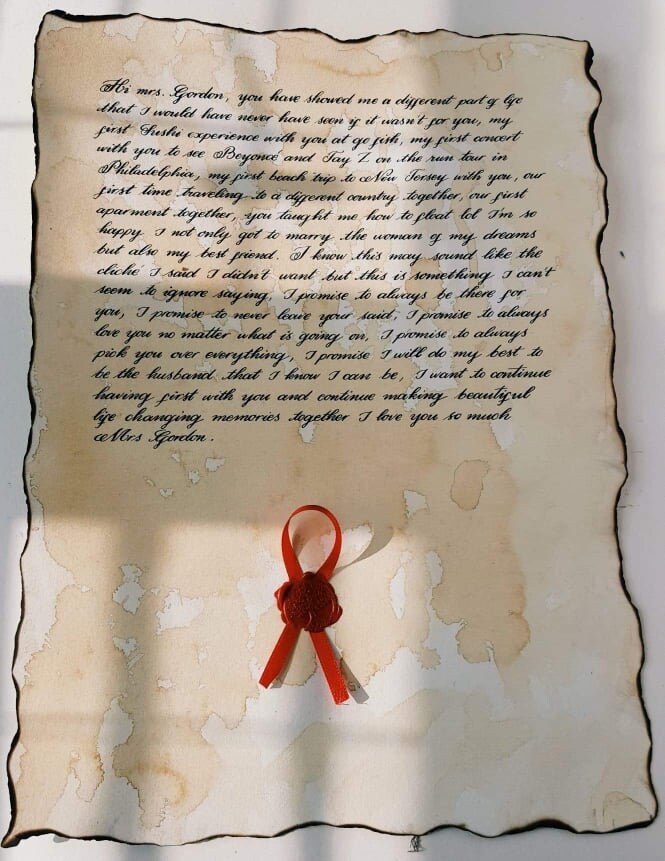 Hi mrs. Gordon, you have showed me a different part of life
that I would have never have seen if it wasn't for you, my
first Sushi experience with you at go fish, my first concert
with you to see Beyoncé and Jay Z on the run tour in
Philadelphia, my first beach trip to New Jersey with you, our
first time traveling to a different country together, our first
aparment together, you taught me how to float lol I'm so
happy I not only got to marry the woman of my dreams
but also my best friend. I know this may sound like the
cliché I said I didn't want but this is something I can't
seem to ignore saying, I promise to always be there for
you, I promise to never leave your said, I promise to always
love you no matter what is going on, I promise to always
pick you over everything, I promise I will do my best to
be the husband that I know I can be, I want to continue
having first with you and continue making beautiful
life changing memories together I love you so much
Mrs Gordon.